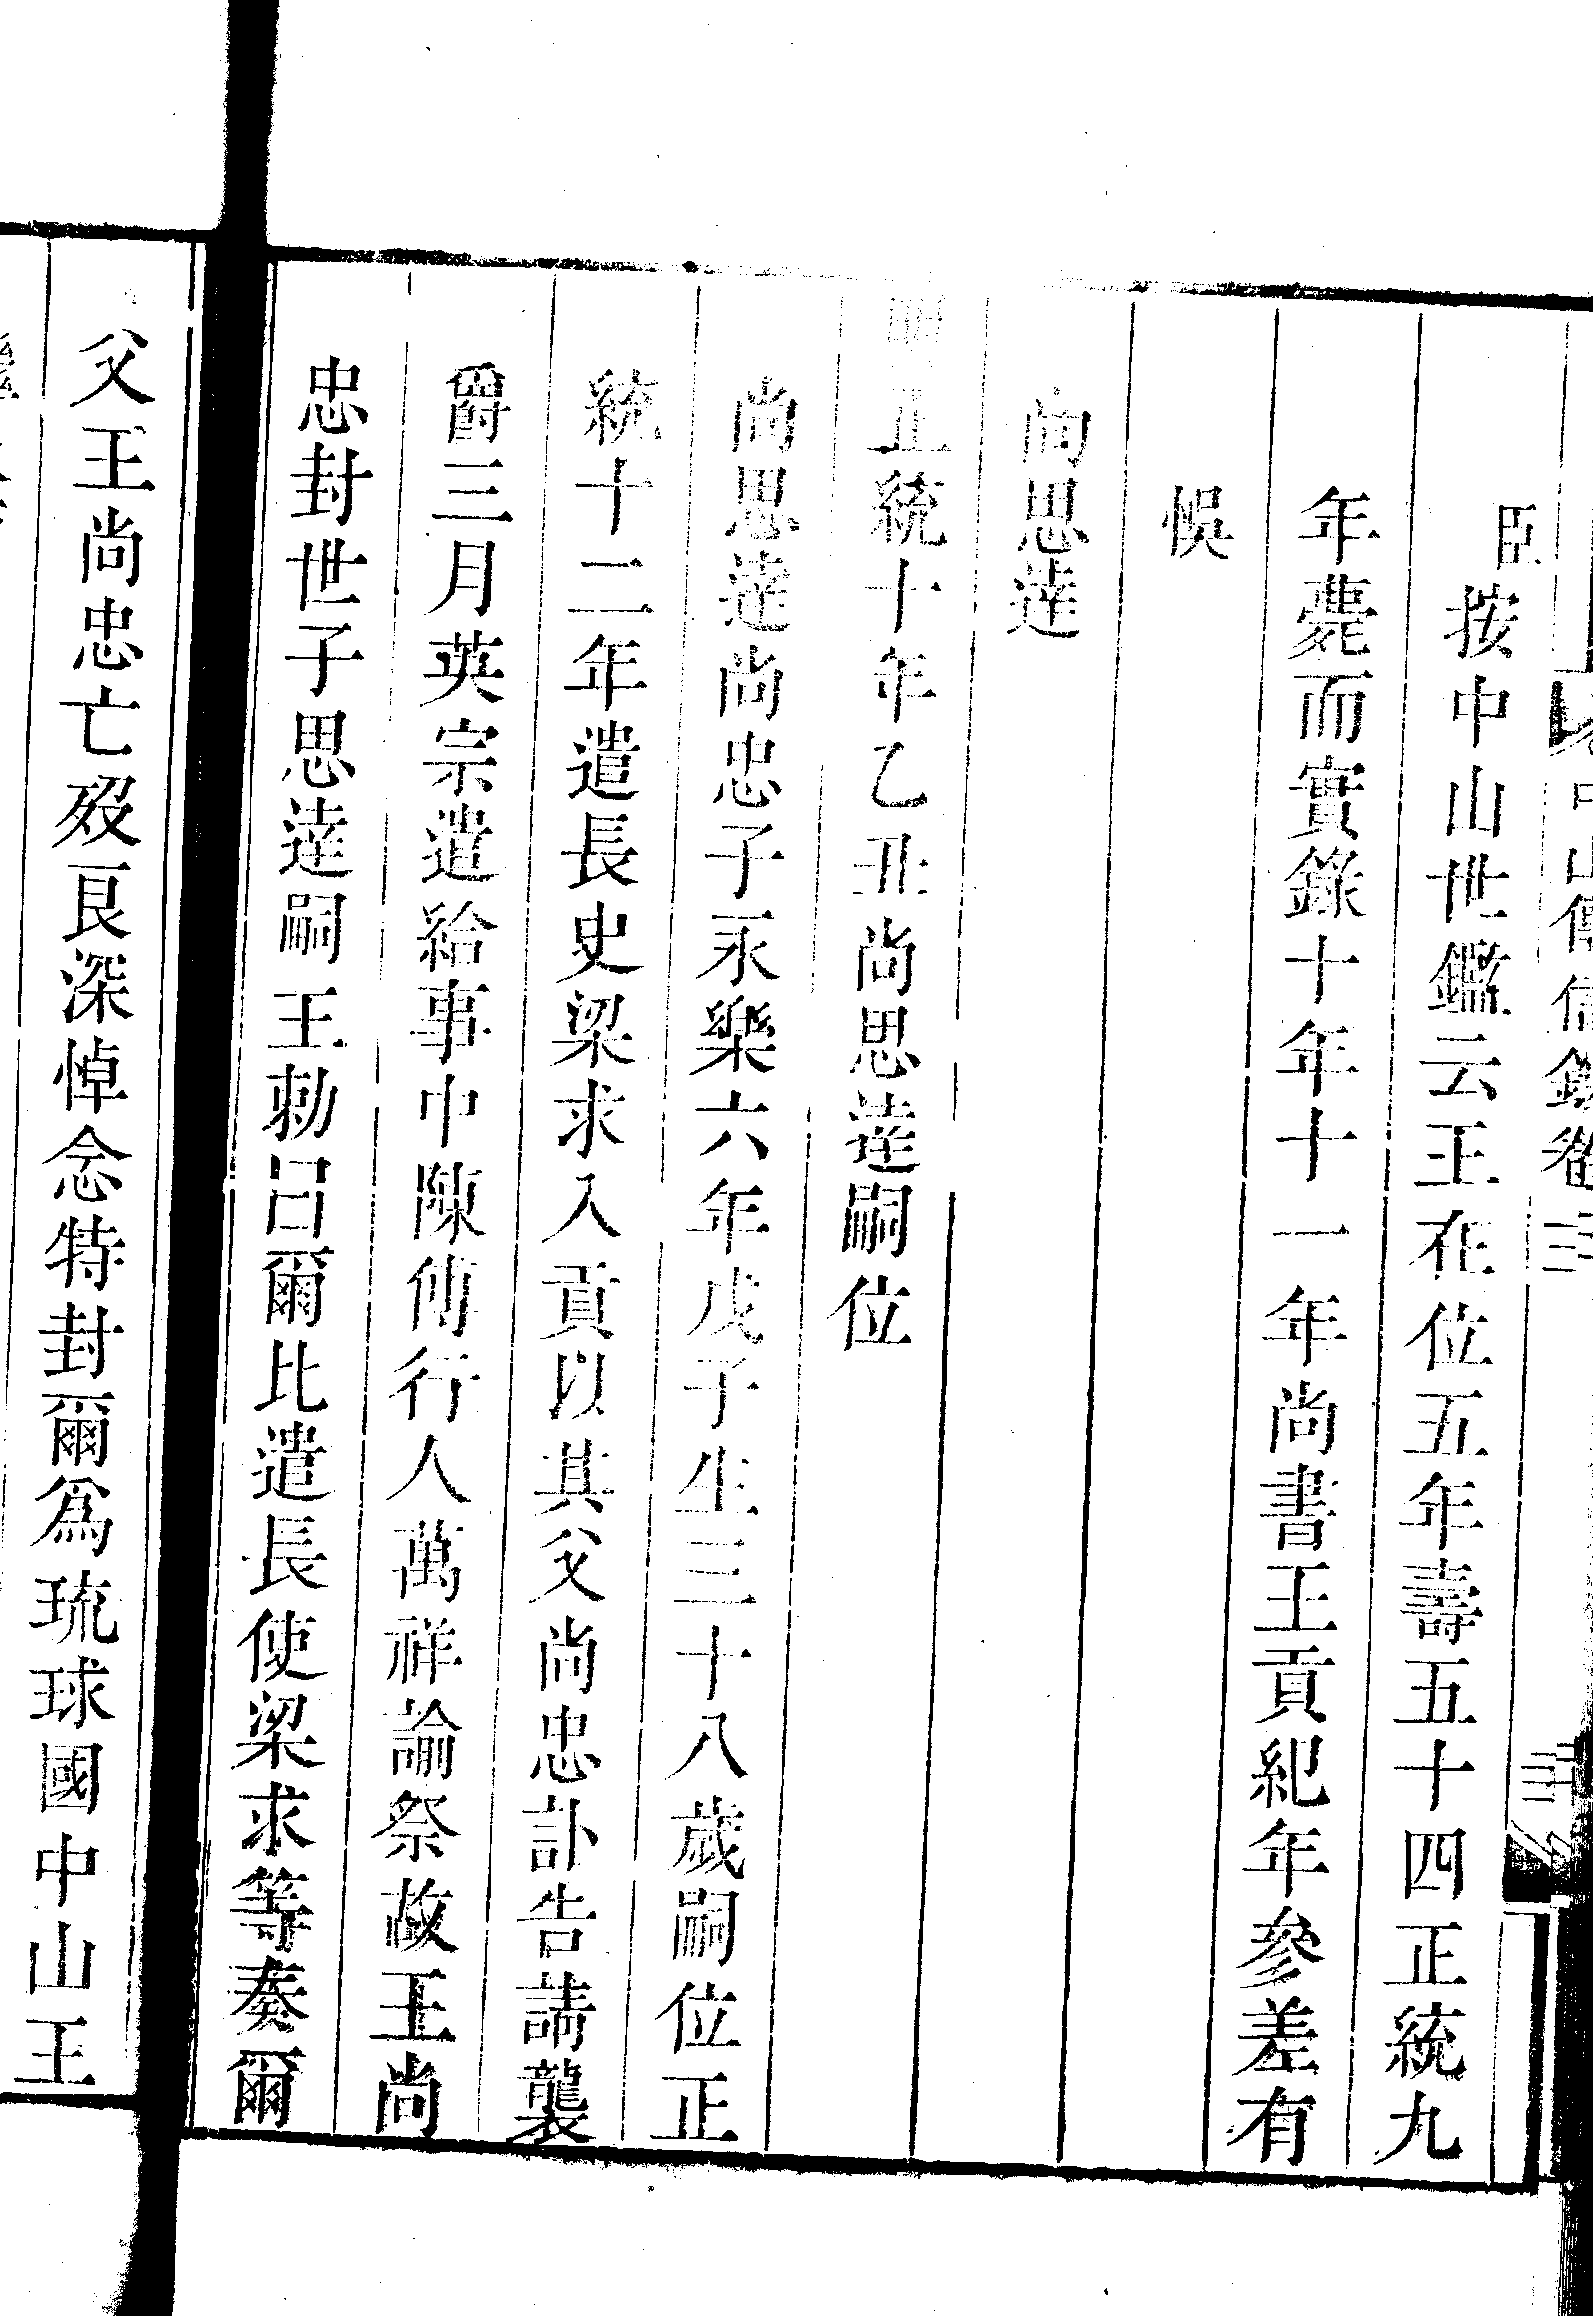 中山傳信錄卷三
臣按中山世鑑云王在位五年壽五十四正統九
年薨而實錄十年十一年尚書王貢紀年參差有
悞
尚思逹
明正統十年乙丑尚思逹嗣位
尚思逹尚忠子永樂六年戊子生三十八歲嗣位正
統十二年遣長史梁求入貢以其父尚忠訃告請襲
爵三月英宗遣給事中陳傅行人萬祥諭祭故王尚
忠封世子思逹嗣王勅曰爾比遣長使梁求等奏爾
父王尚忠亡歿良深悼念特封爾爲琉球國中山王